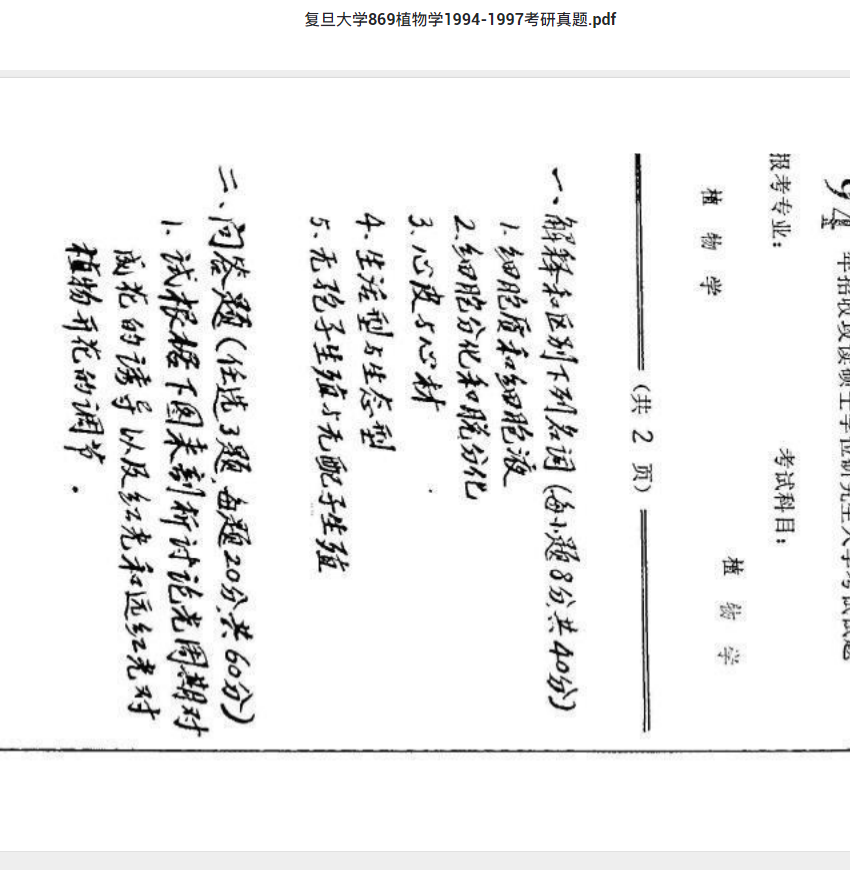 复旦大学869植物学1994-1997考研真题.pdf
94年招收攻读硕士学位研究生入学考试试题
报考专业: 考试科目:
植物学 植物学
(共 2 页)
一、解释和区别下列名词(每小题8分,共40分)
1.细胞质和细胞液
2.细胞分化和脱分化
3.心皮与心材
4.生活型与生态型
5.无孢子生殖与无配子生殖
二、问答题(任选3题,每题20分,共60分)
1.试根据下图来剖析讨论光周期对
成花的诱导以及红光和远红光对
植物开花的调节.